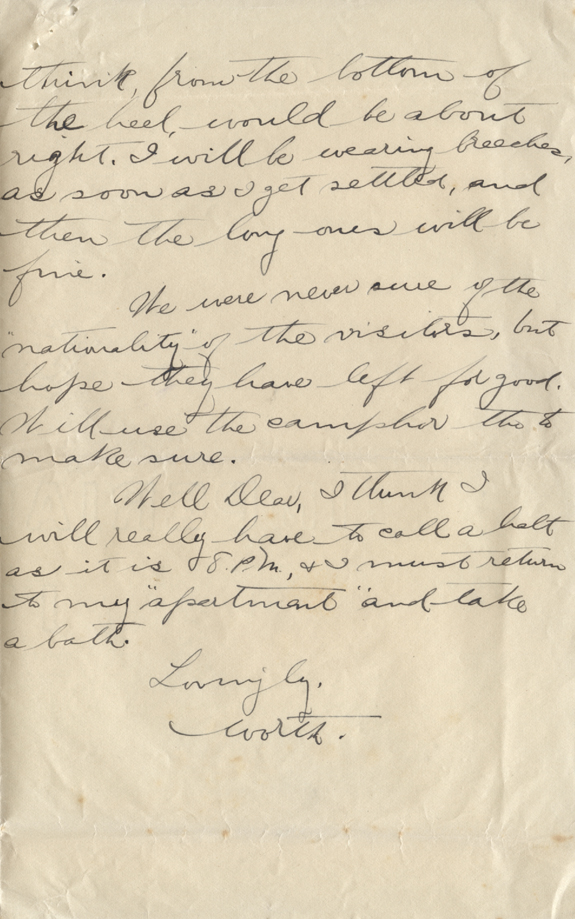 think, from the bottom of
the heel, would be about
right. I will be wearing breeches,
as soon as I get settled, and
then the long ones will be
fine.
We were never sure of the
"nationality" of the visitors, but
hope they have left for good.
Will use the camphor tho to
make sure.
Well Dear, I think I
will really have to call a halt
as it is 8 P.M., & I must return
to my "apartment" and take
a bath.
Lovingly,
Worth.